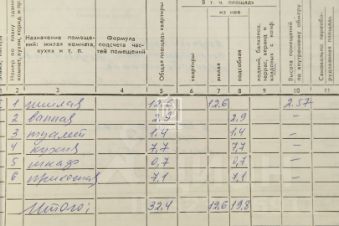 в т. ч. площадь
из нее
Назначение помещений: жилая комната, кухня и т. п.
Формула подсчета частей помещений
Общая площадь квартиры
квартиры
жилая
подсобная
лоджий, балконов
Высота помещений по внутреннему обмеру
2 3 4 5 6 7 8 9 10 11
1 жилая 12,6 12,6 2.57
2 ванная 2,9 2,9 –
3 туалет 1,4 1,4 –
4 кухня 7,7 7,7 –
5 шкаф 0,7 0,7 –
6 прихожая 7,1 7,1 –
Итого: 32,4 12,6 19,8